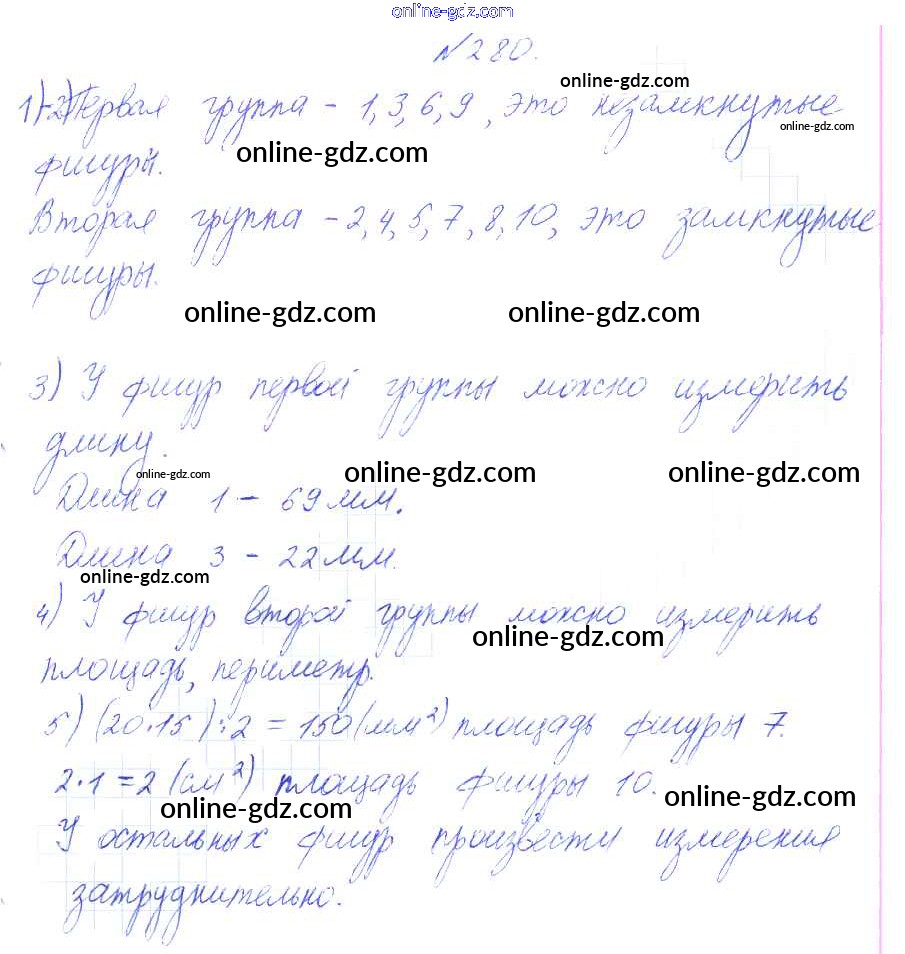 online-gdz.com
№280.
online-gdz.com
1)-2)Первая группа – 1, 3, 6, 9, это незамкнутые
online-gdz.com
online-gdz.com
фигуры.
Вторая группа – 2, 4, 5, 7, 8, 10, это замкнутые
фигуры.
online-gdz.com online-gdz.com
3) У фигур первой группы можно измерить
длину.
online-gdz.com online-gdz.com online-gdz.com
Длина 1 – 69 мм.
Длина 3 – 22 мм.
online-gdz.com
4) У фигур второй группы можно измерить
online-gdz.com
площадь, периметр.
5) (20·15):2 = 150(мм²) площадь фигуры 7.
2·1=2 (см²) площадь фигуры 10.
online-gdz.com online-gdz.com
У остальных фигур произвести измерения
затруднительно.